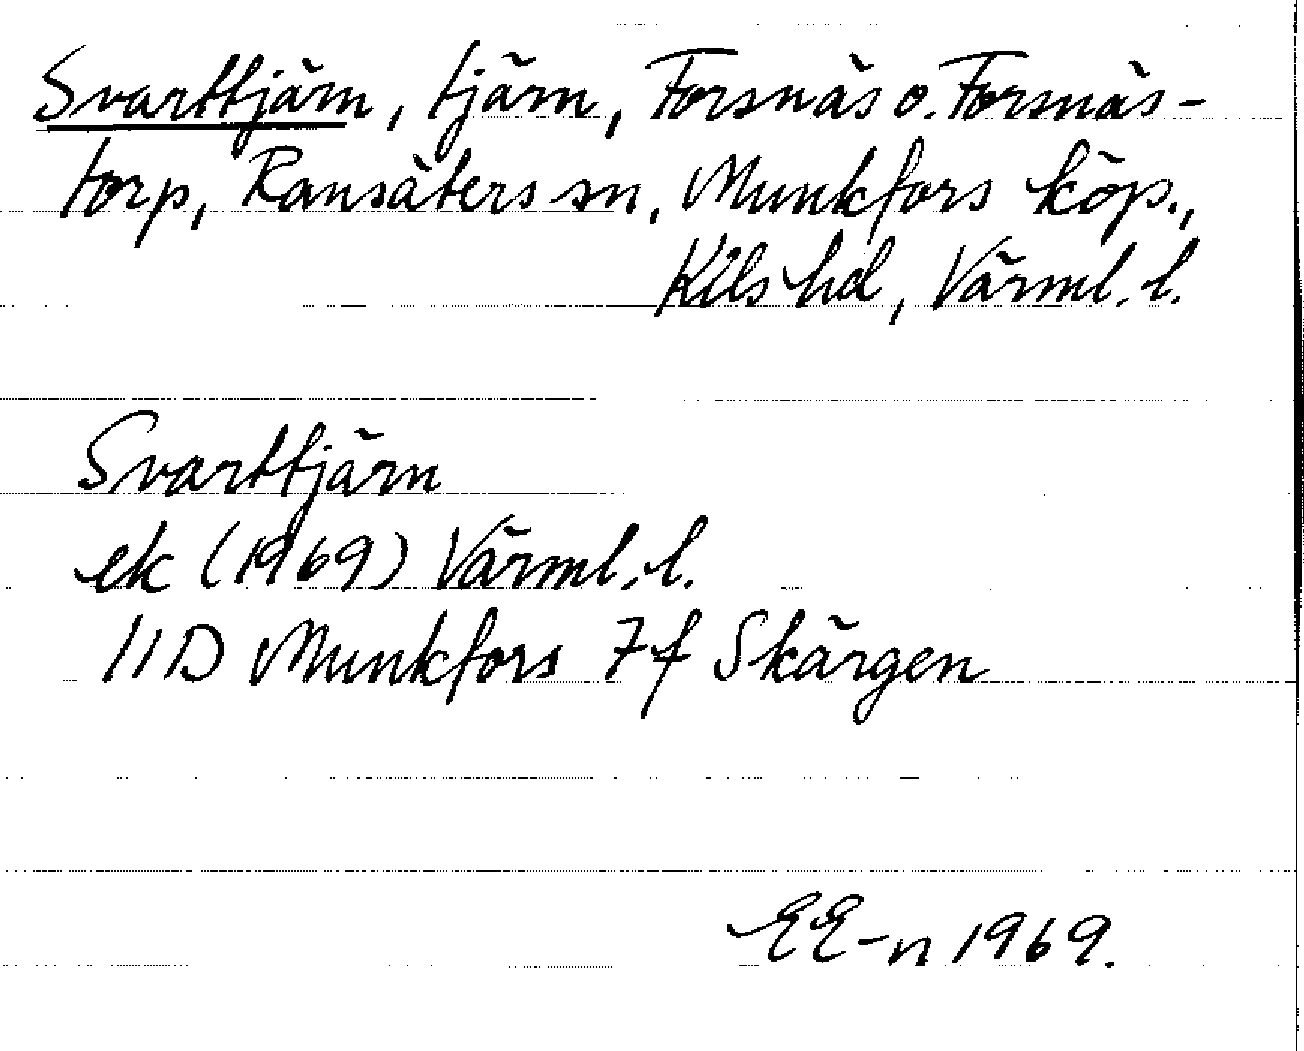 Svarttjärn, tjärn, Forsnäs o. Forsnäs-
torp, Ransäters sn, Munkfors köp.,
Kils hd, Värml. l.
Svarttjärn
ek (1969) Värml. l.
11D Munkfors 7f Skärgen
EE-n 1969.